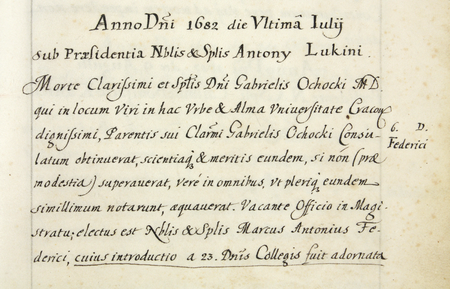 Anno Dñi 1682 die Vltimâ Iulij
sub Præsidentia Nblis & Splis Antony Lukini.
Morte Clarissimi et Splis Dñi Gabrielis Ochocki M D.
qui in locum Viri in hac Vrbe & Alma Vniversitate Cracov
dignissimi, Parentis sui Clarmi Gabrielis Ochocki Consu-
latum obtinuerat, scientiaq̃ & meritis eundem, si non (præ
modestia) superauerat, Verè in omnibus, vt pleriq̃ eundem
simillimum notarunt, æquauerat. Vacante Officio in Magi-
stratu; electus est Nblis & Splis Marcus Antonius Fe-
derici, cuius introductio a 23. Dnus Collegis fuit adornata
6. D.
Federici